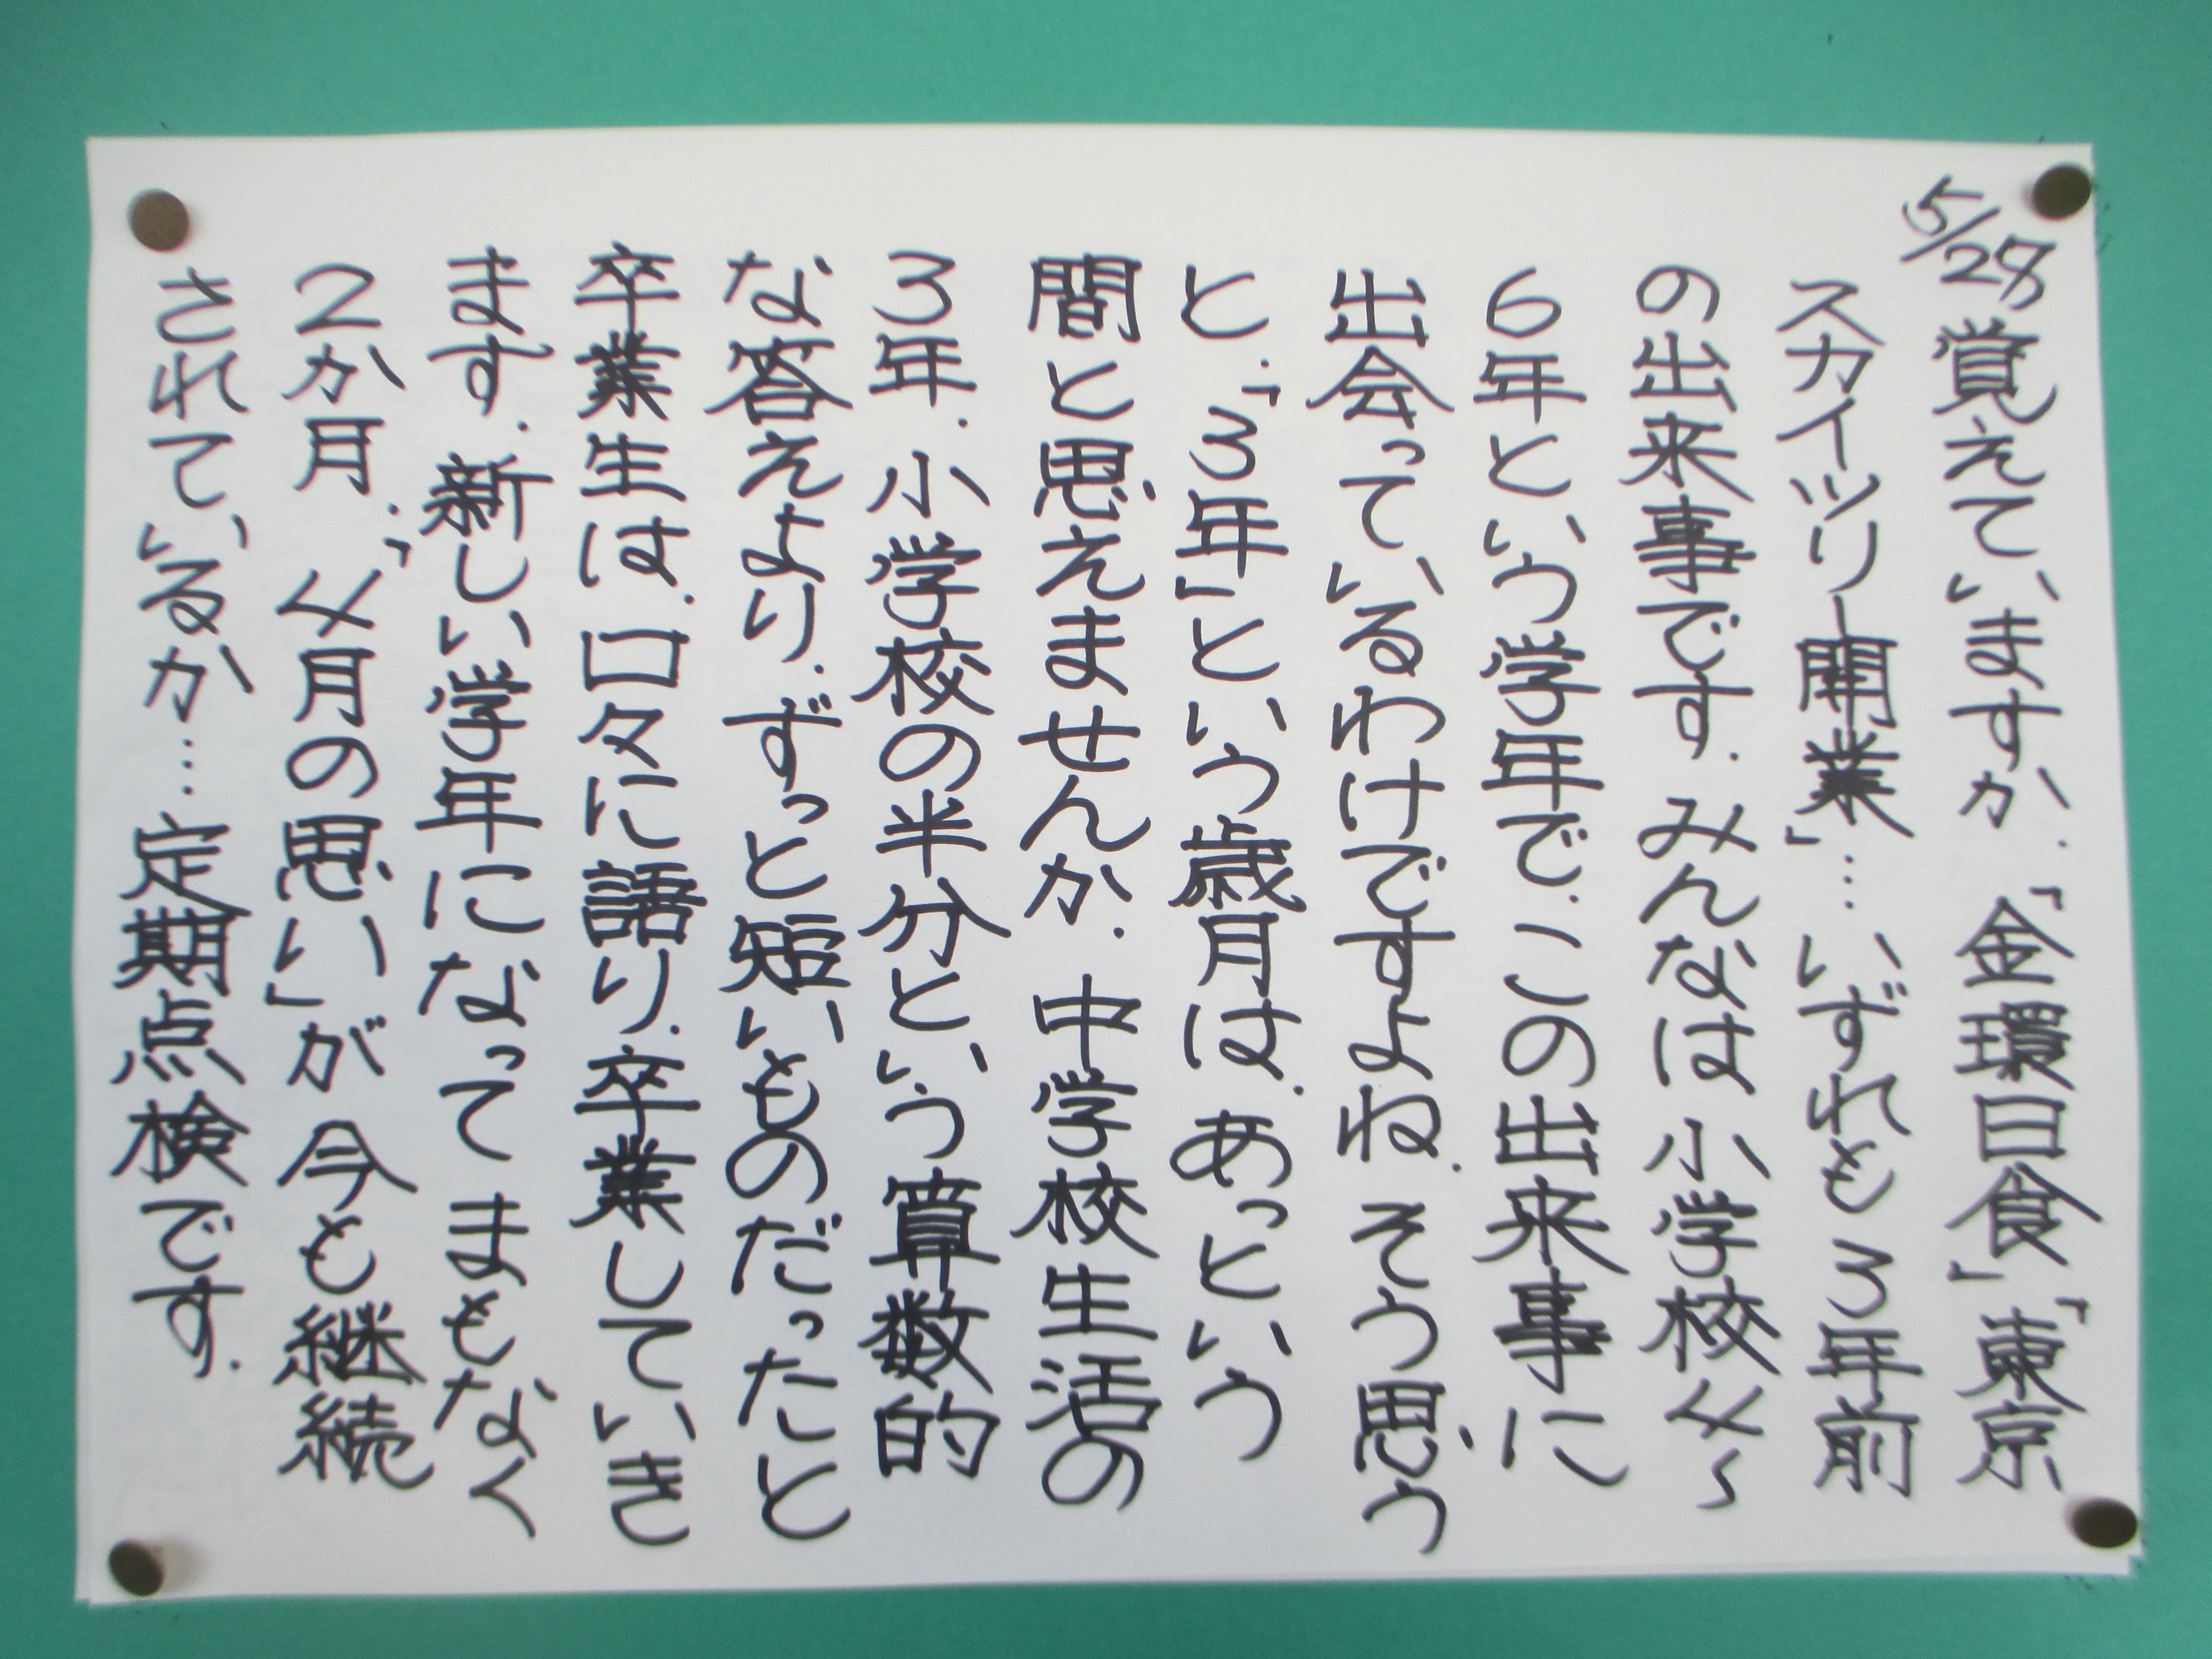 5/28
覚えていますか.「金環日食」「東京
スカイツリー開業」… いずれも3年前
の出来事です. みんなは小学校4~
6年という学年で. この出来事に
出会っているわけですよね. そう思う
と.「3年」という歳月は. あっという
間と思えませんか. 中学校生活の
3年. 小学校の半分という算数的
な答えより. ずっと短いものだったと
卒業生は. 口々に語り. 卒業していき
ます. 新しい学年になってまもなく
2か月.「4月の思い」が今も継続
されているか… 定期点検です.